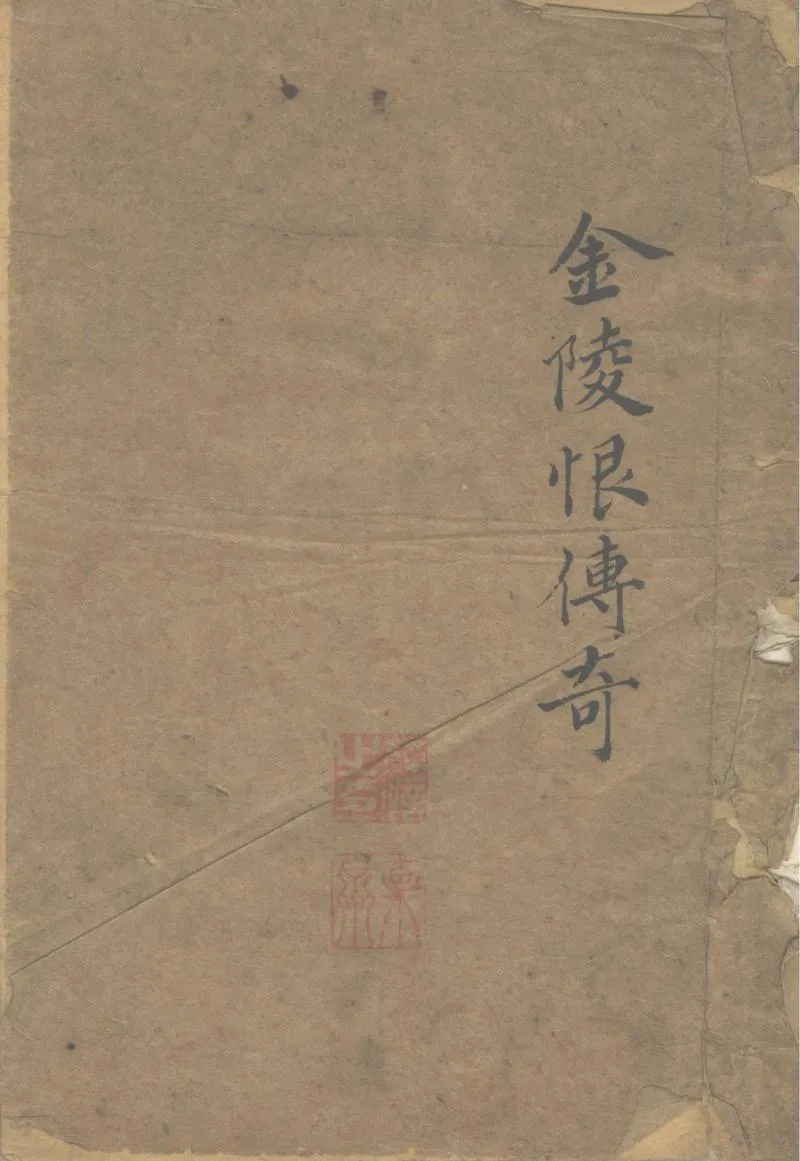 金陵恨傳奇